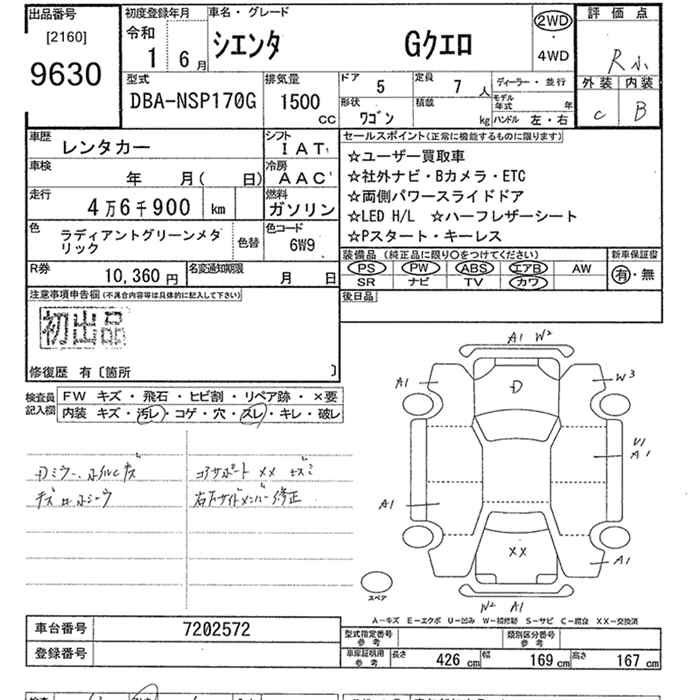 出品番号
[2160]
9630
初度登録年月
令和
1 6月
車名・グレード
シエンタ Gクエロ
2WD
・
4WD
評価点
R小
外装 内装
C B
型式
DBA-NSP170G
排気量
1500
CC
ドア
5
定員
7人
形状
ワゴン
積載
kg
ディーラー・並行
モデル年式 年
ハンドル 左・右
車歴
レンタカー
シフト
IAT
車検
年 月( 日)
冷房
AAC
走行
4万6千900 km
燃料
ガソリン
色
ラディアントグリーンメタ
リック
色替
色コード
6W9
R券
10,360円
名変通知期限
月 日
セールスポイント(正常に機能するものに限ります)
☆ユーザー買取車
☆社外ナビ・Bカメラ・ETC
☆両側パワースライドドア
☆LED H/L ☆ハーフレザーシート
☆Pスタート・キーレス
装備品(純正品に限り○をつけてください)
PS PW ABS エアB AW
SR ナビ TV カワ
新車保証書
有・無
後日品
注意事項申告欄(不具合内容等は具体的に記入して下さい)
初出品
修復歴 有〔箇所 〕
検査員
記入欄
FW キズ・飛石・ヒビ割・リペア跡・×要
内装 キズ・汚レ・コゲ・穴・スレ・キレ・破レ
コアサポート XX キズ
右左サイドメンバー修正
A1 W2
A1
D
W3
U1
A1
A1
XX
A1
W2 A1
スペア
A-キズ E-エクボ U-凹み W-補修跡 S-サビ C-腐食 XX-交換済
車台番号
7202572
登録番号
型式指定番号
参考
類別区分番号
参考
車庫証明用
参考
長さ 426cm 幅 169cm 高さ 167cm